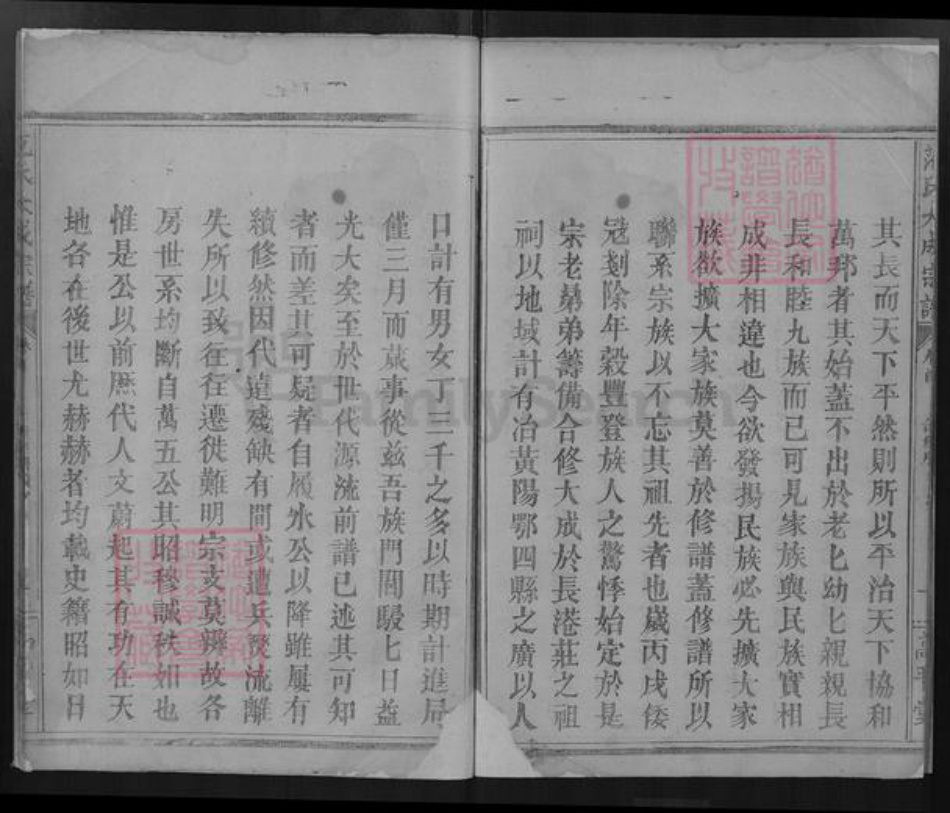 其長而天下平然則所以平治天下協和
萬邦者其始蓋不出於老匕幼匕親親長
長和睦九族而已可見家族與民族實相
成非相違也今欲發揚民族必先擴大家
族欲擴大家族莫善於修譜蓋修譜所以
聯系宗族以不忘其祖先者也歲丙戌倭
冦剗除年穀豐登族人之驚悸始定於是
宗老昴弟籌備合修大成於長港莊之祖
祠以地域計有冶黃陽鄂四縣之廣以人
口計有男女丁三千之多以時期計進局
僅三月而蕆事從兹吾族門閭駸匕日益
光大矣至於世代源流前譜已述其可知
者而差其可疑者自履氷公以降雖屢有
續修然因代遠殘缺有間或遭兵燹流離
失所以致往在遷徙難明宗支莫辨故各
房世系均斷自萬五公其昭穆誠秩如也
惟是公以前庶代人文蔚起其有功在天
地各在後世尤赫赫者均載史籍昭如日
氏大成宗譜
FamilySearch